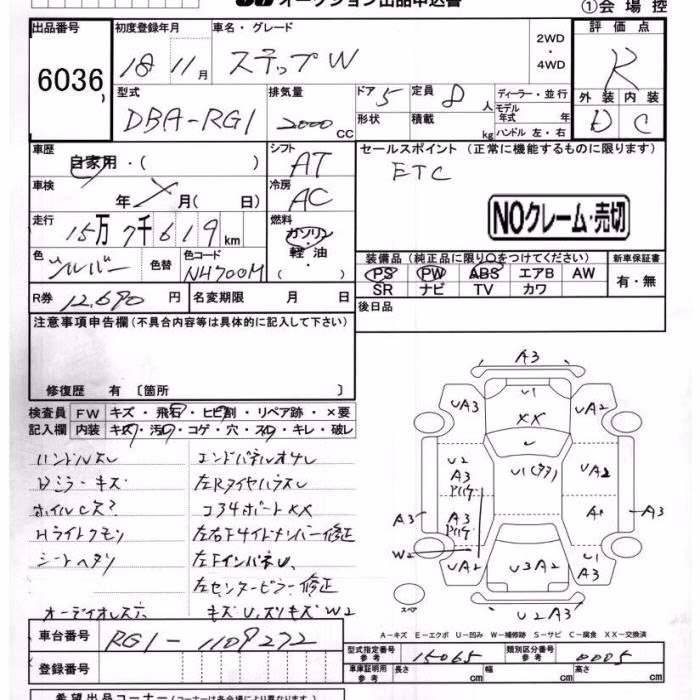 オークション出品申込書
①会場控
出品番号
6036
初度登録年月
18 11月
車名・グレード
ステップW
2WD
・
4WD
評価点
R
外装 内装
D C
型式
DBA-RG1
排気量
2000 CC
ドア 5
形状
定員 8 人
積載 kg
ディーラー・並行
モデル年式 年
ハンドル 左・右
車歴
自家用・( )
シフト
AT
セールスポイント (正常に機能するものに限ります)
ETC
NOクレーム・売切
車検
年 月( 日)
冷房
AC
走行
15万7千619km
燃料
ガソリン
軽油
色
シルバー
色替
色コード
NH700M
装備品(純正品に限り○をつけてください)
PS PW ABS エアB AW
SR ナビ TV カワ
新車保証書
有・無
R券 12,690円
名変期限 月 日
後日品
注意事項申告欄(不具合内容等は具体的に記入して下さい)
修復歴 有〔箇所 〕
検査員 FW キズ・飛石・ヒビ割・リペア跡・×要
記入欄 内装 キズ・汚レ・コゲ・穴・スレ・キレ・破レ
ハンドルスレ
エンドパネルオサレ
Dミラーキズ
左RタイヤハウスU
ホイルCスア
コア4ボートXX
Hライトクモリ
左右Fサイドメンバー修正
シートヘタリ
左FインパネU、
左センターピラー修正
オーディオレス穴
キズU、スリキズW2
A3
U1
UA3
XX
UA2
U
U2
A3
U1
UA2
A3
A1
A3
A3
W2
UA2
U3A2
U1
A3
スペア
U2A3
A-キズ E-エクボ U-凹み W-補修跡 S-サビ C-腐食 XX-交換済
車台番号
RG1-1109272
型式指定番号
参考
15065
類別区分番号
参考
0005
登録番号
車庫証明用
参考
長さ cm
幅 cm
高さ cm
希望出品コーナー(コーナーは各会場により異なります)